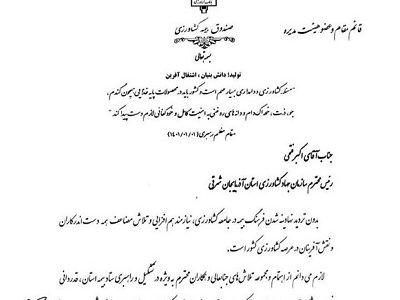 قائم مقام و عضو هیئت مدیره
صندوق بیمه کشاورزی
بسمه تعالی
تولید؛ دانش بنیان، اشتغال آفرین
"مسئله کشاورزی و دامداری بسیار مهم است و کشور باید در محصولات پایه غذایی همچون گندم،
جو، ذرت، خوراک دام و دانه های روغنی به امنیت کامل و خودکفائی لازم دست پیدا کند"
مقام معظم رهبری (۱۴۰۱/۰۱/۰۱)
جناب آقای اکبر فتحی
رئیس محترم سازمان جهاد کشاورزی استان آذربایجان شرقی
بدون تردید نهادینه شدن فرهنگ بیمه در جامعه کشاورزی، نیازمند هم افزایی و تلاش مضاعف همه دست اندرکاران
و نقش آفرینان در عرصه کشاورزی کشور است.
لازم می دانم از اهتمام و مجموعه تلاش های جنابعالی و همکاران محترم به ویژه در تشکیل و راهبری ستاد بیمه استان، قدردانی